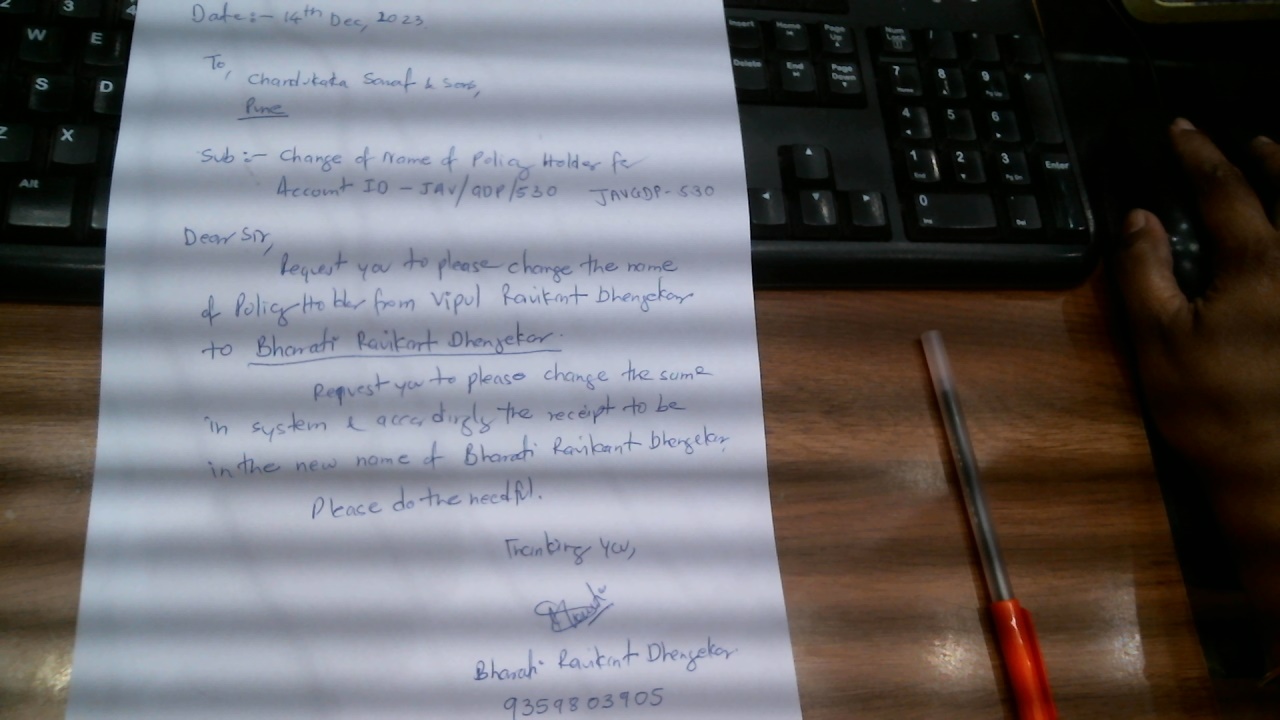 Date:- 14th Dec, 2023.
To,
Chandukaka Saraf & Sons,
Pune
Sub :- Change of Name of Policy Holder for
Account ID - JAV/GDP/530 JAVGDP-530
Dear Sir,
Request you to please change the name
of Policy Holder from Vipul Ravikant Dhenjekar
to Bharati Ravikant Dhenjekar.
Request you to please change the same
in system & accordingly the receipt to be
in the new name of Bharati Ravikant Dhenjekar.
Please do the needful.
Thanking You,
Bharati Ravikant Dhenjekar
9359803905
3 4
W E
S D
Z X
Alt
Insert Home Page Up
Delete End Page Down
Num Lock / * -
7 8 9 +
4 5 6
1 2 3 Enter
0